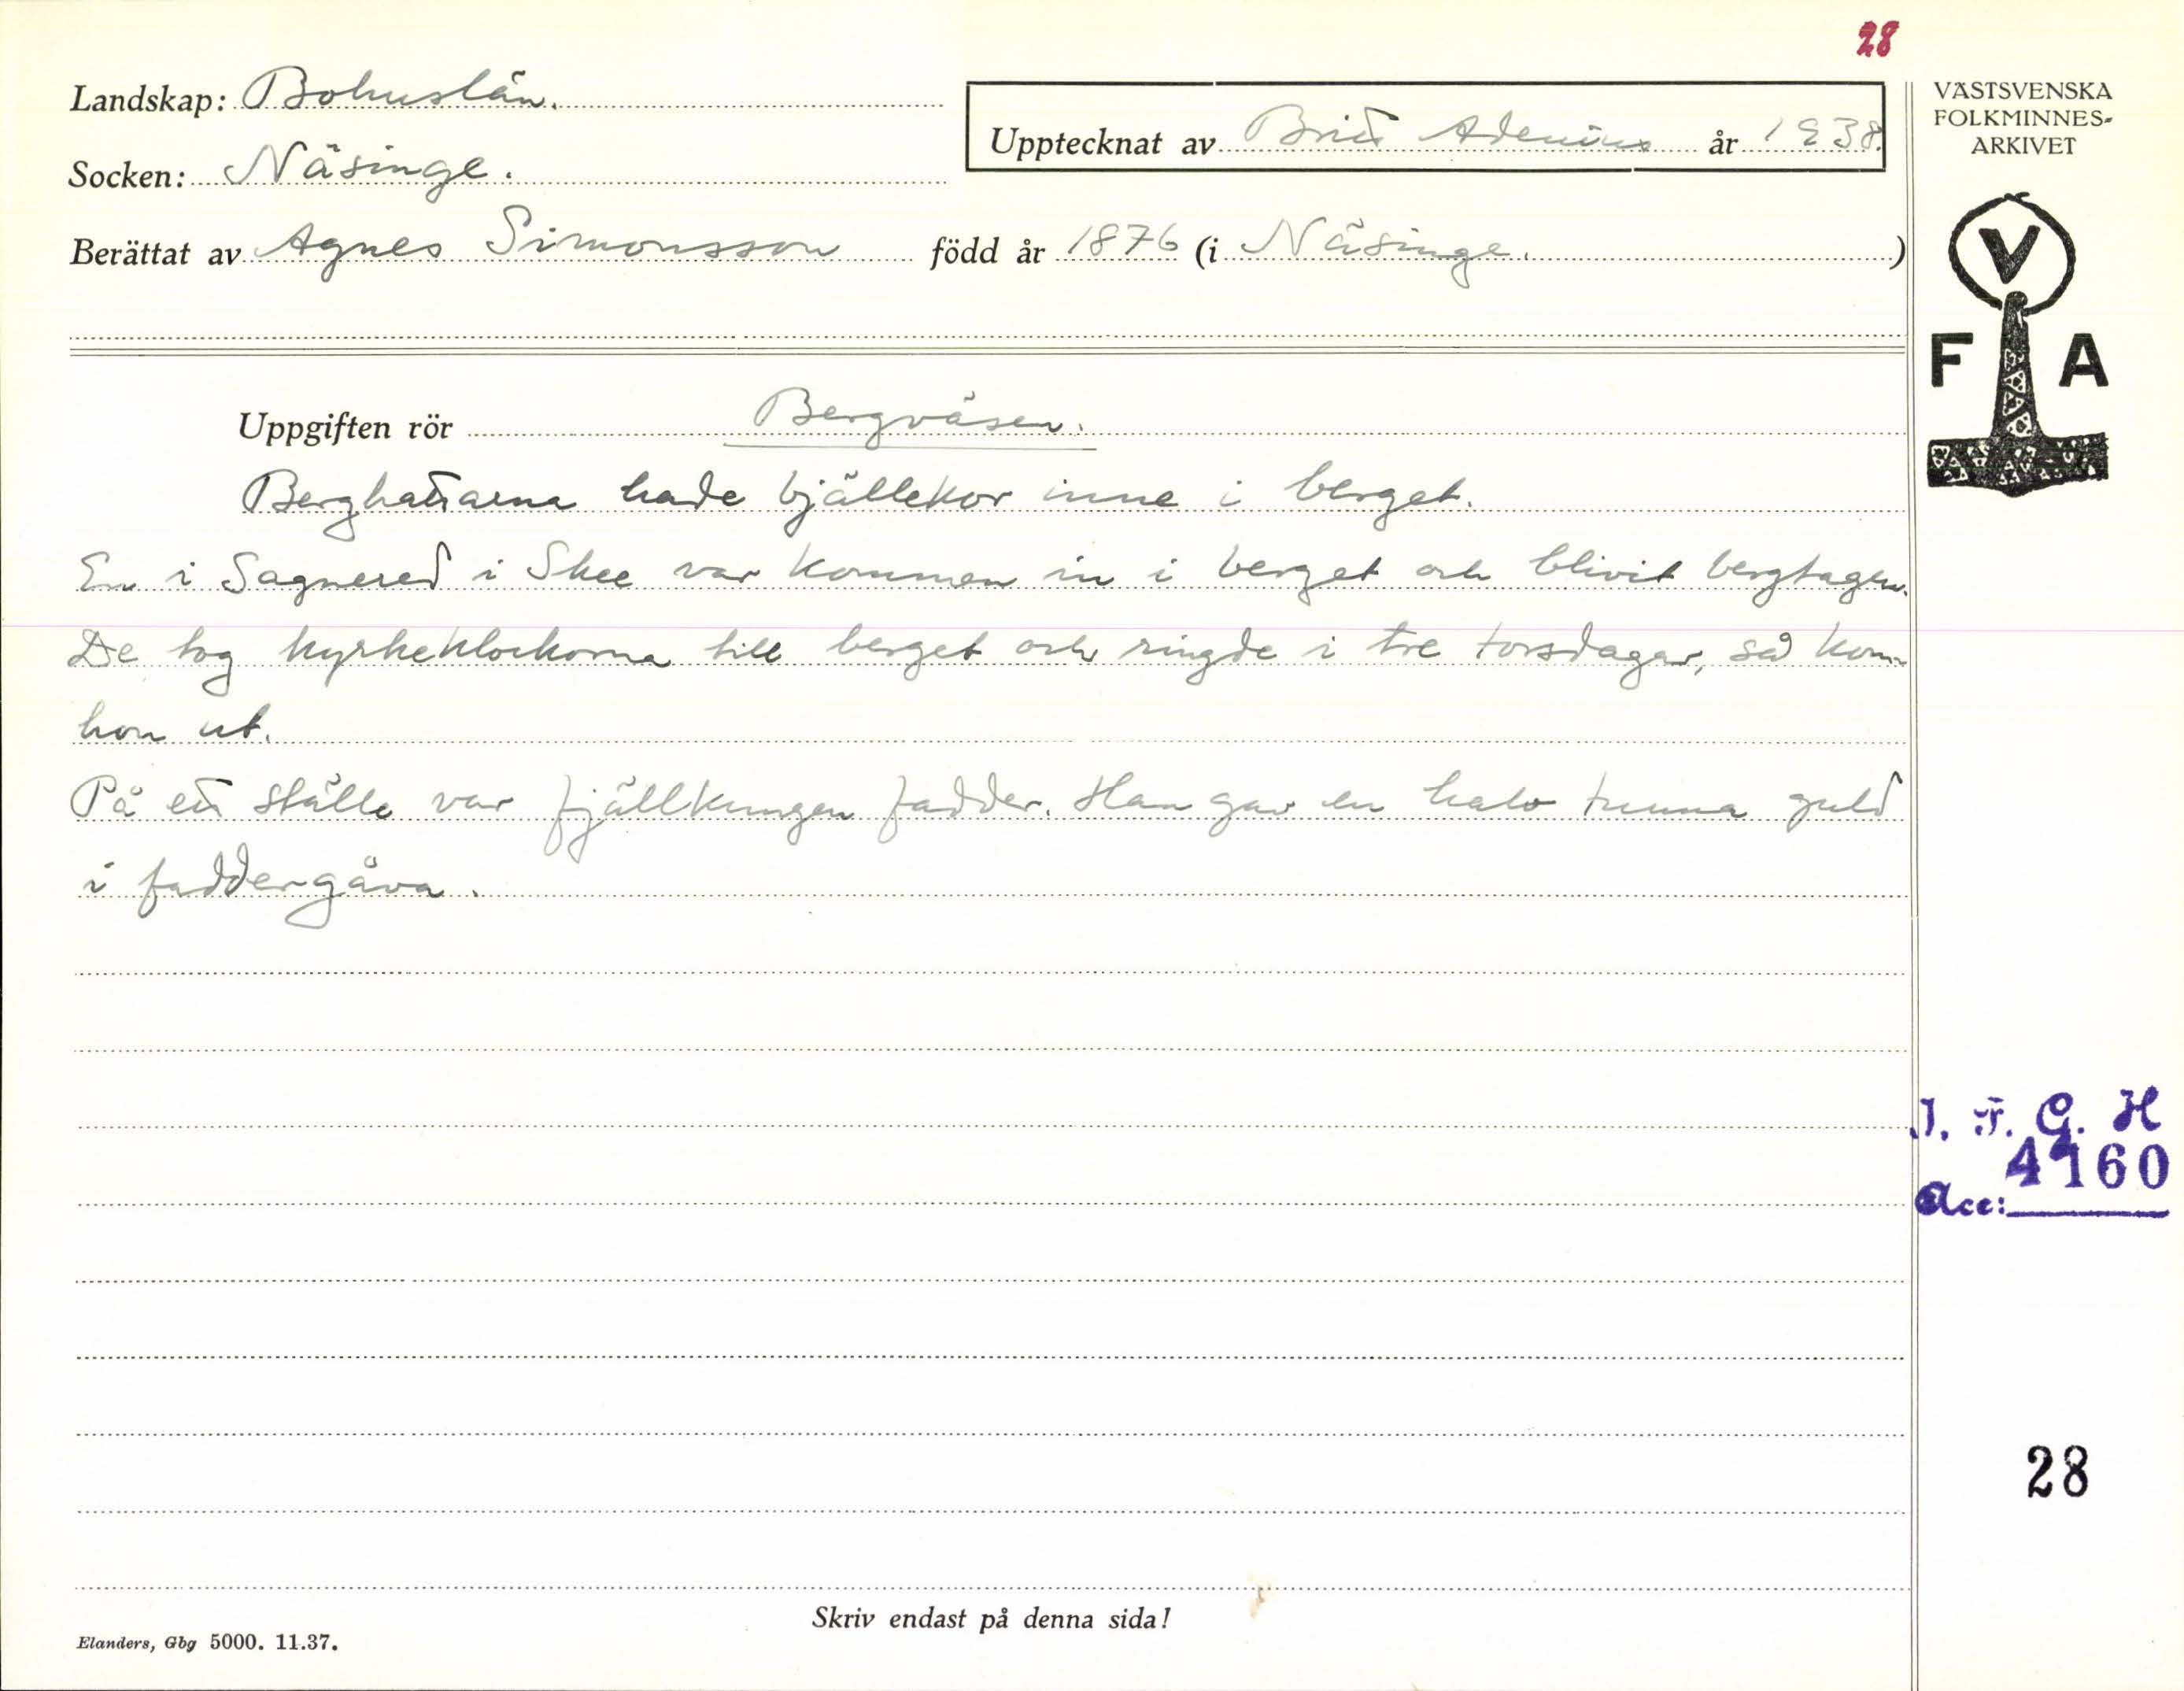 28
Landskap: Bohuslän.
Upptecknat av Britt Adenius år 1938.
Socken: Näsinge.
Berättat av Agnes Simonsson född år 1876 (i Näsinge.)
VÄSTSVENSKA
FOLKMINNES-
ARKIVET
V
F A
Uppgiften rör Bergväsen.
Berghattarna hade bjällekor inne i berget.
En i Sagnered i Skee var kommen in i berget och blivit bergtagen.
De tog kyrkeklockorna till berget och ringde i tre torsdagar, så kom
hon ut.
På ett ställe var fjällkungen fadder. Han gav en halv tunna guld
i faddergåva.
I. F. G. H
4160
Acc:
28
Skriv endast på denna sida!
Elanders, Gbg 5000. 11.37.